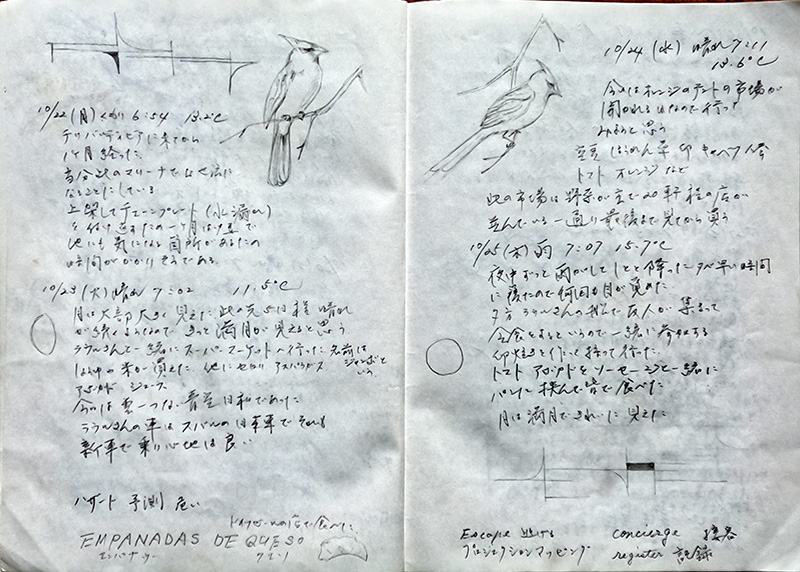 10/22(月)くもり 6:54 13.2℃
に来てから
1ヶ月経った
当分此のマリーナで
なることにしている
上架してチェーンプレート(水漏れ)
他にも気になる箇所があるため
時間がかかりそうである
10/23(火)晴れ 7:02 11.5℃
月は大部大きく見えた 此の先5日程 晴れ
が続くようなので きっと満月が見えると思う
ラウルさんと一緒にスーパーマーケットへ行った 名前は
ジャンボと
米が買えた 他にセロリ アスパラガス
いう
アボカド ジュース
今日は雲一つない青空日和であった
ラウルさんの車はスバルの日本車で それも
新車で乗り心地は良い
ハザード 予測 危い
の店で食べた
EMPANADAS DE QUESO
エンパナダ ケソ
10/24(水)晴れ 7:11
13.6℃
今日はオレンジのテントの市場が
開かれる日なので行って
みようと思う
豆 ほうれん草 卵 キャベツ
トマト オレンジなど
此の市場は野菜が主で20軒程の店が
並んでいる 一通り最後まで見てから買う
10/25(木)雨 7:07 15.7℃
夜中ずっと雨がしとしとと降った 夕べ早い時間
に寝たので何回も目が覚めた
夕方 ラウルさんの船で友人が集まって
会食をするというので一緒に参加する
卵焼きを作って持って行った
トマト アボカドをソーセージと一緒に
パンに挟んで皆で食べた
月は満月できれいに見えた
Escape 逃げる
プロジェクションマッピング
concierge 接客
register 記録